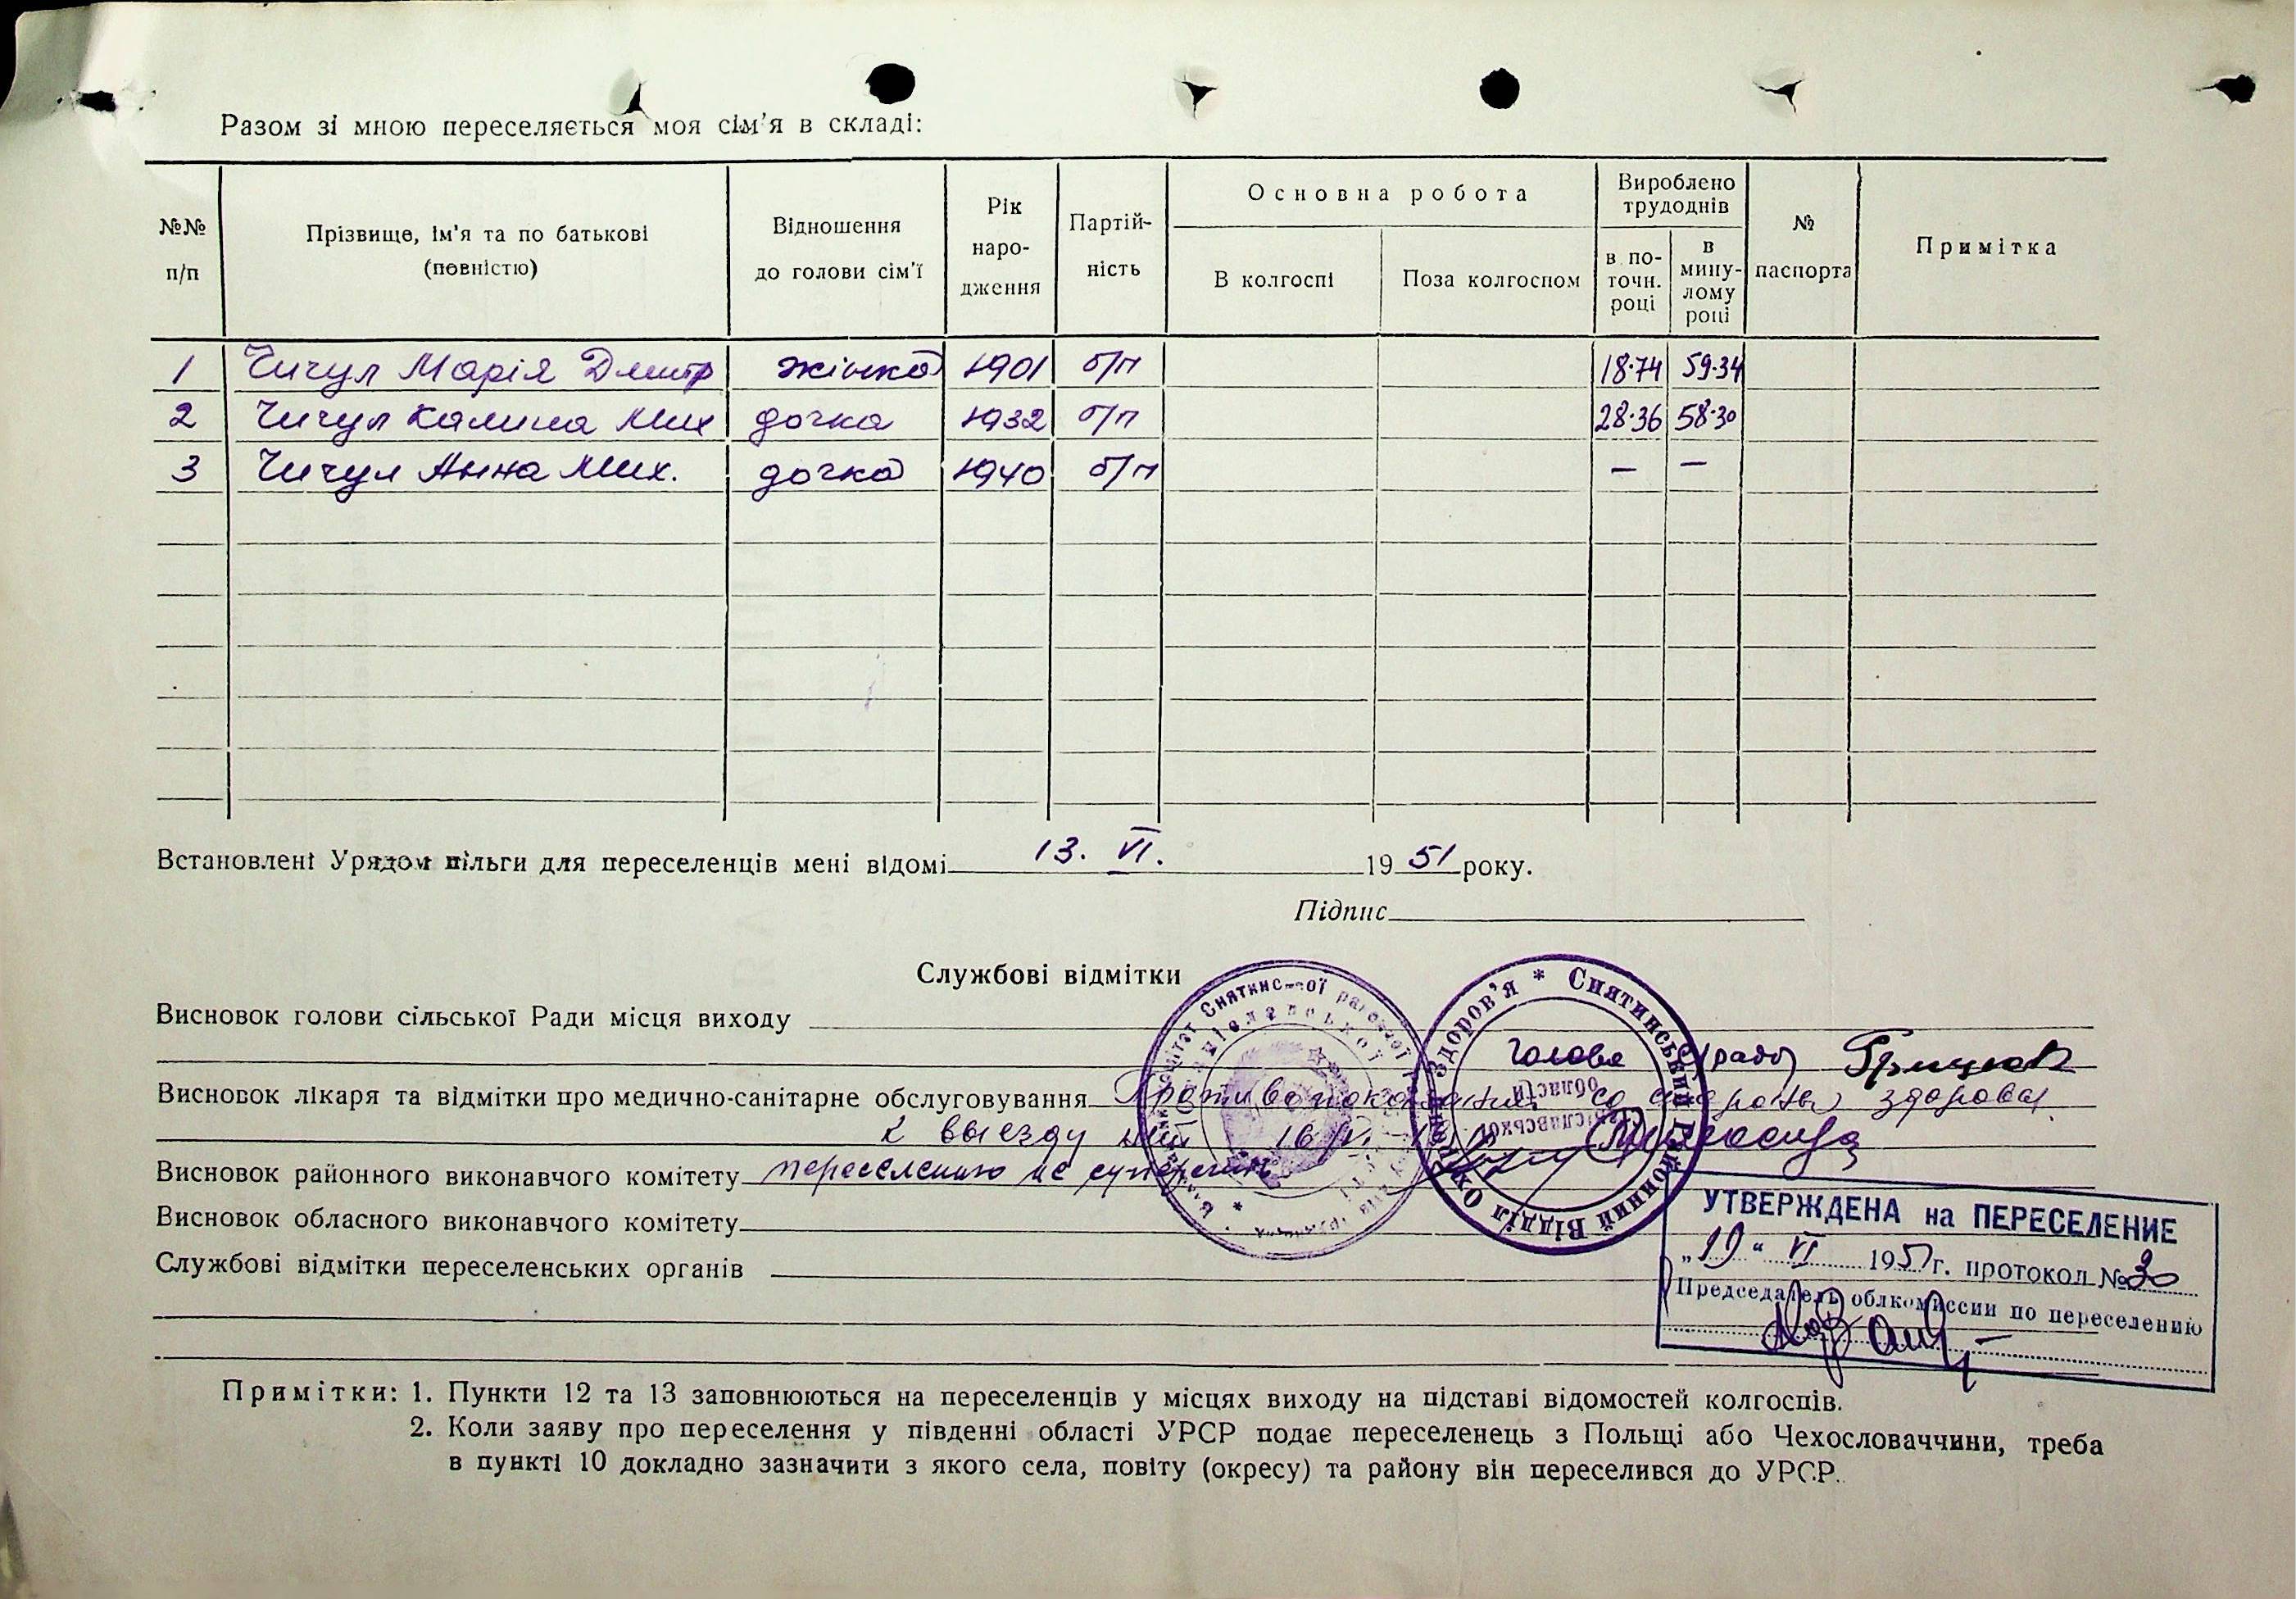 Разом зі мною переселяється моя сім'я в складі:
№№ п/п
Прізвище, ім'я та по батькові (повністю)
Відношення до голови сім'ї
Рік наро-дження
Партій-ність
Основна робота
В колгоспі
Поза колгоспом
Вироблено трудоднів
в по-точн. році
в мину-лому році
№ паспорта
Примітка
1 Чичул Марія Дмитр жінка 1901 б/п 18·74 59·34
2 Чичул Калина Мих дочка 1932 б/п 28·36 58·30
3 Чичул Анна Мих. дочка 1940 б/п — —
Встановлені Урядом пільги для переселенців мені відомі 13. VI. 1951 року.
Підпис
Службові відмітки
Висновок голови сільської Ради місця виходу
Голова ради Грицюк
Висновок лікаря та відмітки про медично-санітарне обслуговування Противопоказания со стороны здоровья
к выезду нет 16
Висновок районного виконавчого комітету переселенню не суперечить
Висновок обласного виконавчого комітету
Службові відмітки переселенських органів
Снятинський Районний Відділ Охорони Здоров'я *
області
УТВЕРЖДЕНА на ПЕРЕСЕЛЕНИЕ
„19“ VI 1951 г. протокол № 30
Председатель облкомиссии по переселению
Примітки: 1. Пункти 12 та 13 заповнюються на переселенців у місцях виходу на підставі відомостей колгоспів.
2. Коли заяву про переселення у південні області УРСР подає переселенець з Польщі або Чехословаччини, треба
в пункті 10 докладно зазначити з якого села, повіту (окресу) та району він переселився до УРСР.